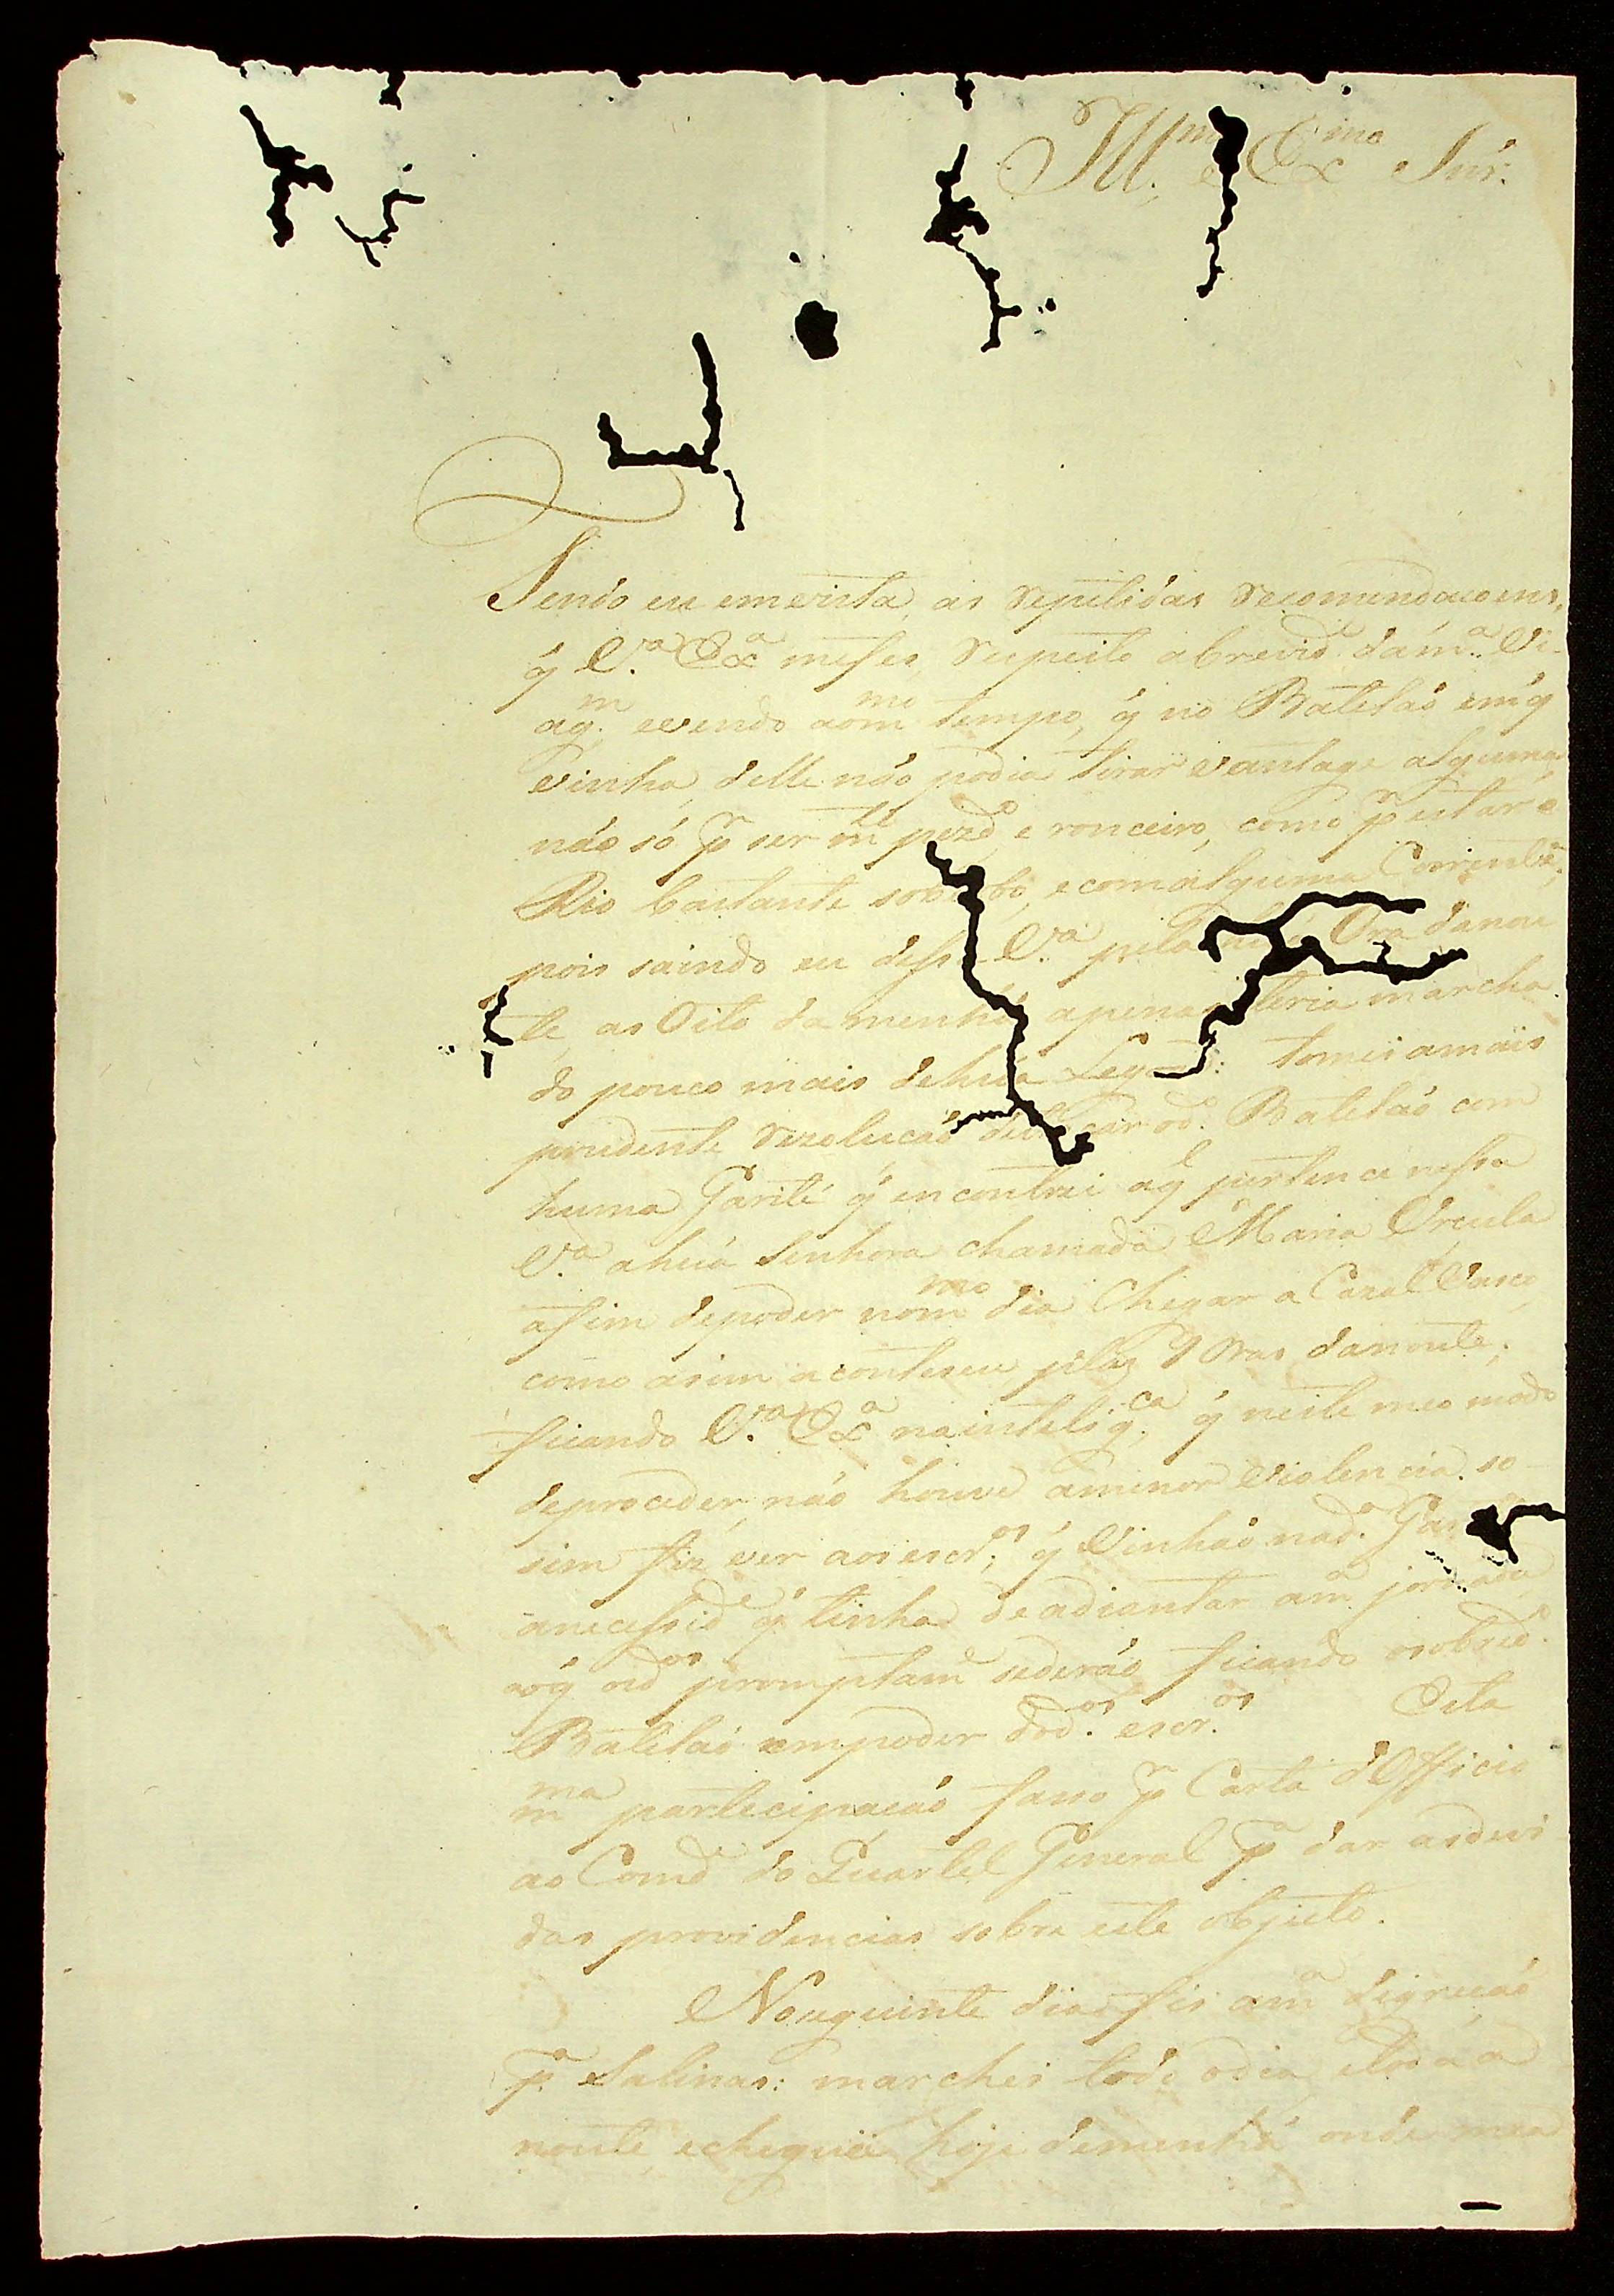 Ill.mo e Ex.mo Snr.
Tendo eu emvista, as repetidas recomendacoens,
q̃ V.a Ex.a mefes, respeito abrevid.e dam.a Vi-
ag.m, evendo aom.mo tempo, q̃ no Batelaõ emq̃
vinha, delle naõ podia tirar vantage alguma,
naõ só p.r ser m.to pezd.o e ronceiro, como p.r estar o
Rio bastante sob bo, ecomalguma Correnteza,
pois saindo eu dessa V.a pela Ora danou
te, as Oito da menhã, apenas teria marcha
do pouco mais dehuã Leg : tomei amais
prudente rezolucaõ car od.o Batelaõ com
huma Garité q̃ encontrei aq̃l pertence nessa
V.a ahuã Senhora chamada Maria Urcula
afim depoder nom.mo dia Chegar a Cazal Vasco,
como asim aconteseu pelas 9 Oras danoute;
ficando V.a Ex.a naintelig.ca, q̃ neste meo modo
deproceder, naõ houve amenor violencia. so
sim fiz ver aosescr.os, q̃ Vinhaõ nad.a Gar
anecessid.e q̃ tinha deadiantar am.a jornada
aoq̃ osd.os promptam.e sederaõ, ficando osobred.o
Batelaõ empoder dosd.os escr.os Esta
m.ma partecipaçaõ fasso p.r Carta d'Officio
ao Comd.e do Quartel General p.a dar asdevi
das providencias sobre este objecto.
Noseguinte dia fis am.a digrecaõ
p.a Salinas: marchei todo odia, etoda a
noute, echeguei hoje demenhã onde